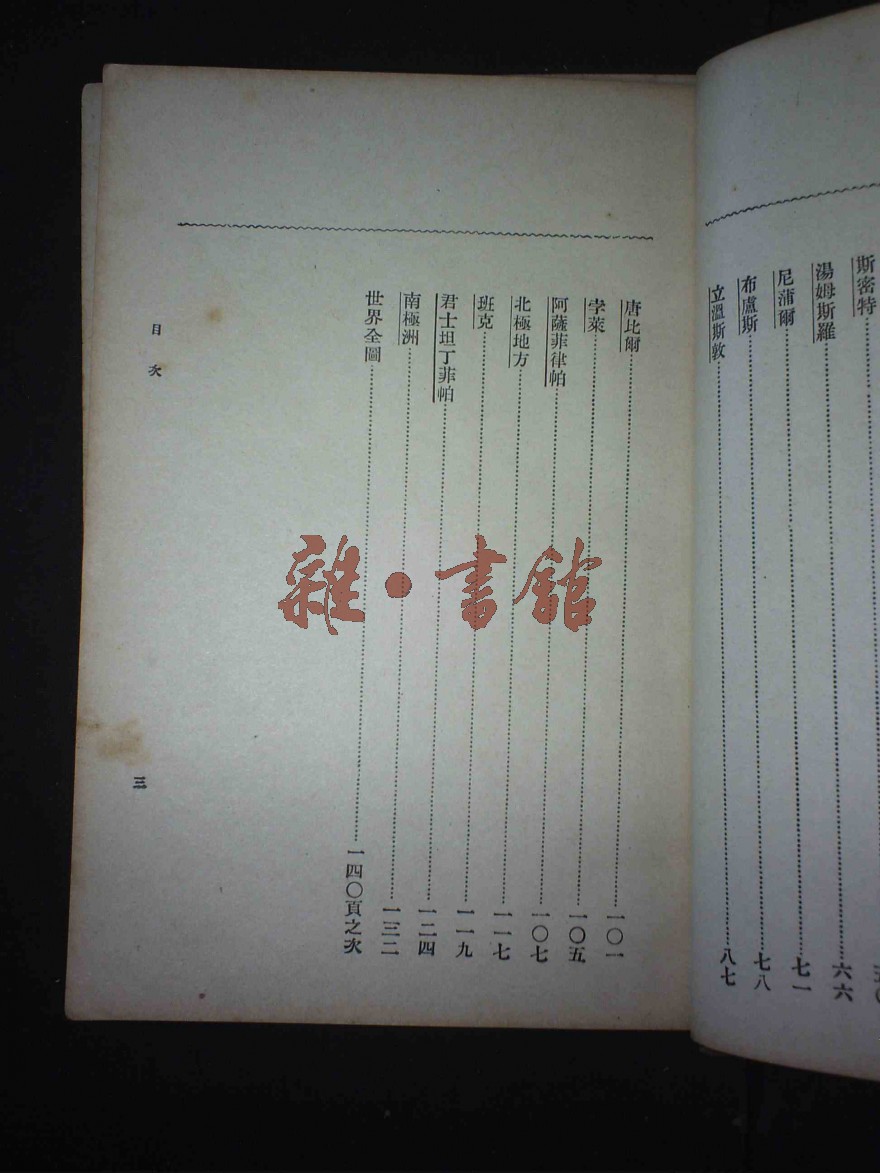 斯密特
湯姆斯羅……六六
尼蒲爾……七一
布盧斯……七八
立溫斯敦……八七
唐比爾……一〇一
孛萊……一〇五
阿薩菲律帕……一〇七
北極地方……一一七
班克……一一九
君士坦丁菲帕……一二四
南極洲……一三二
世界全圖……一四〇頁之次
目次
三
雜·書館